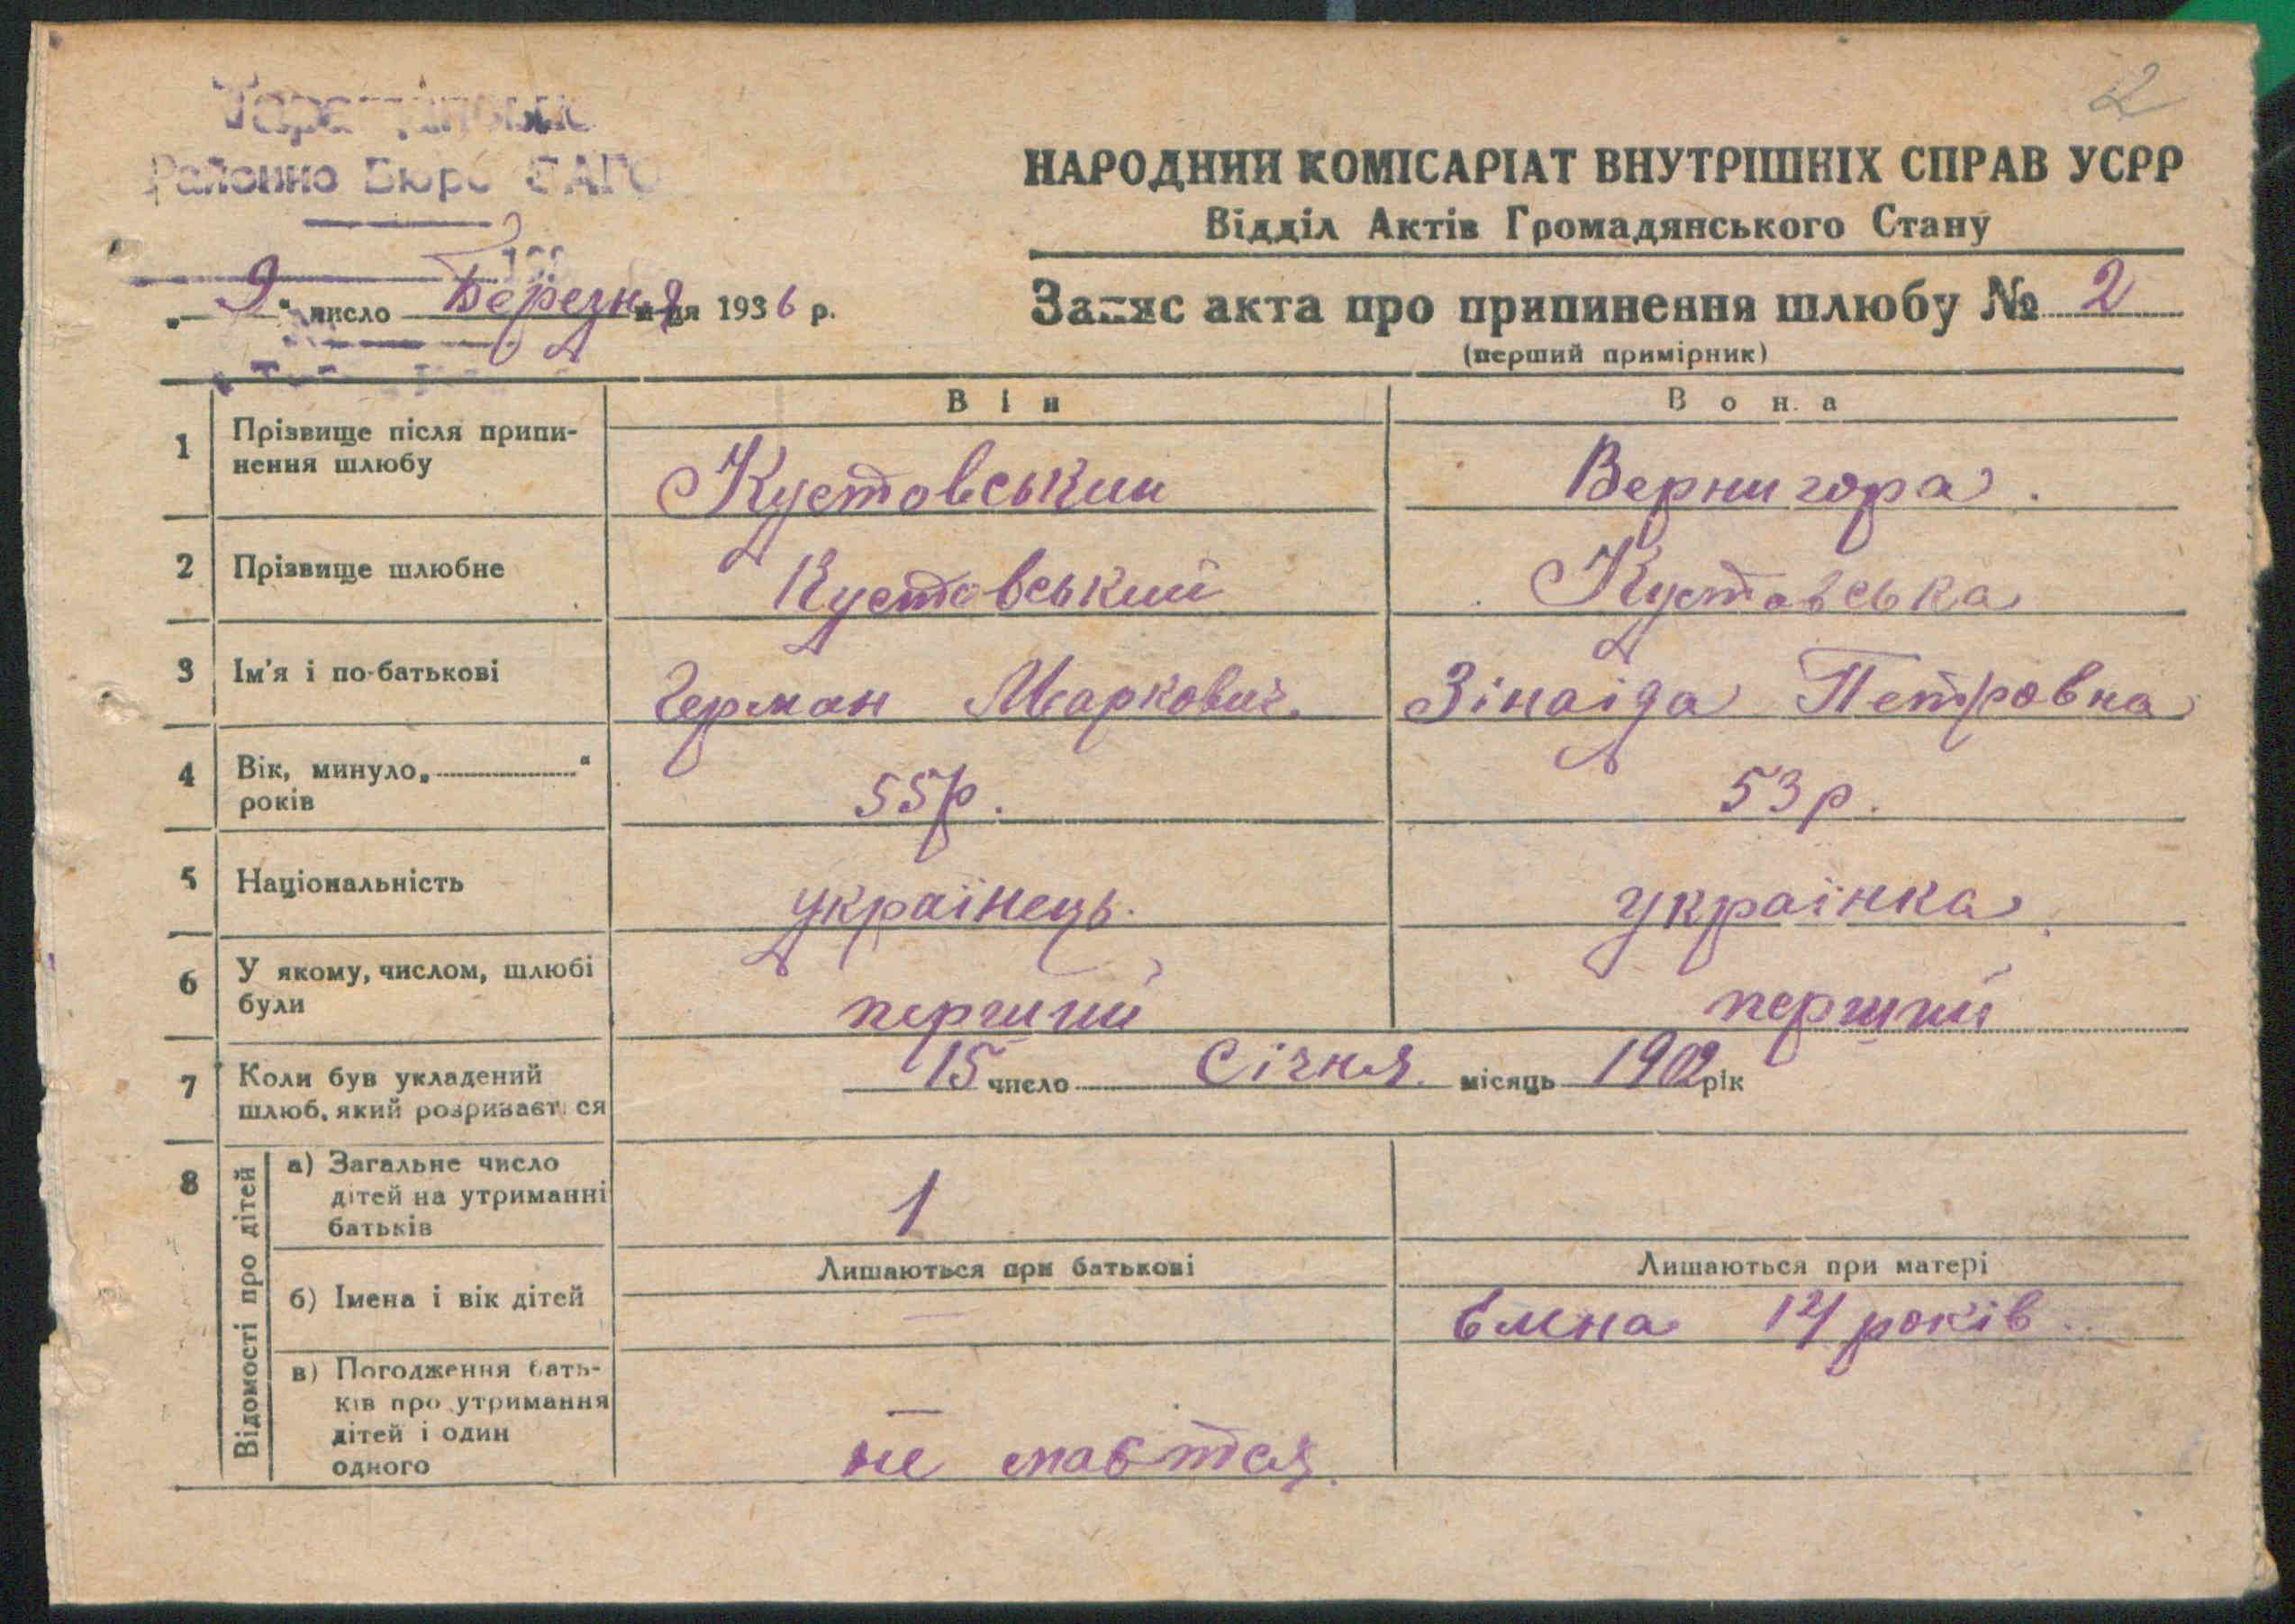 2
Районно Бюро ЗАГС
НАРОДНИЙ КОМІСАРІАТ ВНУТРІШНІХ СПРАВ УСРР
Відділ Актів Громадянського Стану
„ 9 “ число Березня м-ця 1936 р.
Запис акта про припинення шлюбу № 2
(перший примірник)
Він Вона
1 Прізвище після припи-
нення шлюбу
Кустовський Вернигора.
2 Прізвище шлюбне Кустовський Кустовська
3 Ім'я і по-батькові Герман Маркович. Зінаіда Петровна
4 Вік, минуло „ “
років
55 р. 53 р.
5 Національність українець. українка.
6 У якому, числом, шлюбі
були
перший перший
7 Коли був укладений
шлюб, який розривається
15 число Січня місяць 1902 рік
8 Відомості про дітей
а) Загальне число
дітей на утриманні
батьків
1
Лишаються при батькові Лишаються при матері
б) Імена і вік дітей — 14 років.
в) Погодження бать-
ків про утримання
дітей і один
одного
не мається.